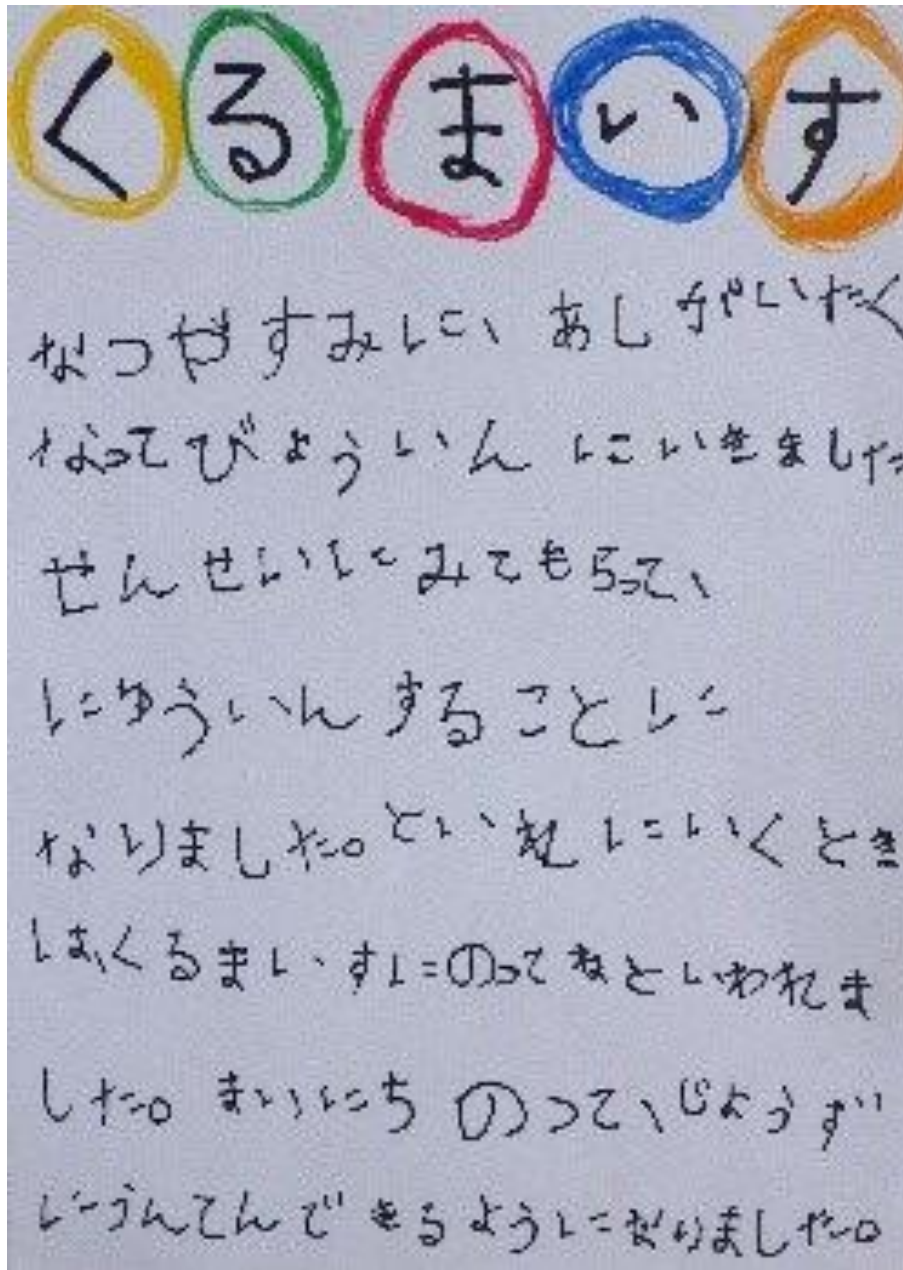 くるまいす
なつやすみに、あしがいたく
なってびょういんにいきました
せんせいにみてもらって、
にゅういんすることに
なりました。といれにいくとき
は、くるまいすにのってねといわれま
した。まいにちのって、じょうず
にうんてんできるようになりました。